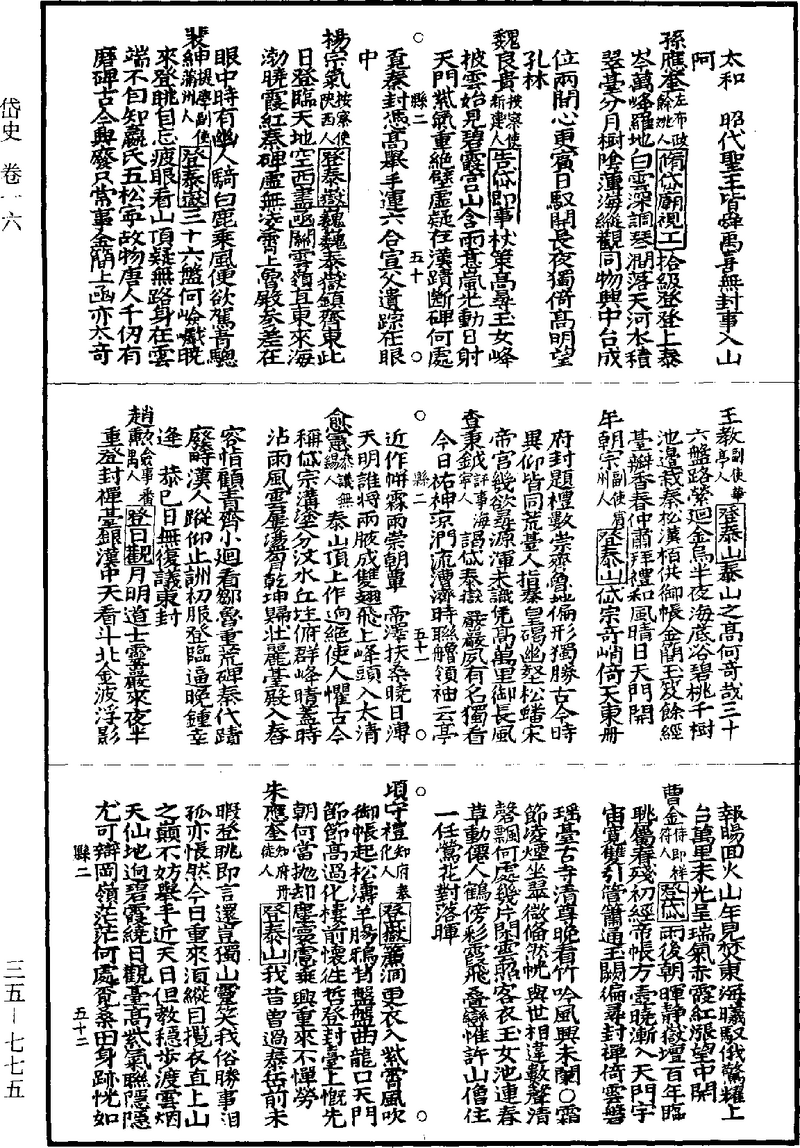 岱史 卷一六
三五—七七五
太和 昭代聖王皆舜禹喜無封事入山
阿
孫應奎左布政餘姚人脩岱廟視工拾級登登上泰
岑萬峰羅地白雲深澗琴瀉落天河水積
翠臺分月樹陰薄海縱觀同物興中台成
位兩間心更賓日馭開長夜獨倚高明望
孔林
魏良貴按察使新建人告岱即事杖策高尋玉女峰
披雲始見碧霞宮山含雨意嵐光動日射
天門紫氣重絕壁虛疑在漢蹟斷碑何處
縣二 五十
覓秦封憑高舉手運六合宣父遺踪在眼
中
楊宗氣按察使陝西人登泰嶽巍巍泰嶽鎮齊東此
日登臨天地空西盡函關雪嶺亙東來海
渤曉霞紅秦碑虛無凌霄上魯殿參差在
眼中時有幽人騎白鹿乘風便欲駕青驄
裴紳提學副使蒲州人登泰嶽三十六盤何崄巇晚
來登眺自忘疲眼看山頂疑無路身在雲
端不自知嬴氏五松寧故物唐人千仞有
磨碑古今興廢只常事金簡上函亦太奇
王教副使華亭人登泰山泰山之高何奇哉三十
六盤路縈迴金烏半夜海底浴碧桃千樹
池邊栽秦松漢栢供御帳金蕳玉笈餘經
臺瓣香春仲肅拜禮和風晴日天門開
年朝宗副使賓州人登泰山岱宗奇峭倚天東冊
府封題禮數崇齊魯地偏形獨勝古今時
異仰皆同荒臺人指秦皇碣幽壑松蟠宋
帝宮幾欲尋源渾未識凭高萬里御長風
查秉鉞評事海寧人謁岱泰嶽巖巖夙有名獨看
今日祐神京門流漕濟時聯艫領袖云亭
縣二 五十一
近作帡霖雨崇朝單 帝澤扶桑曉日溥
天明誰將兩腋成雙翅飛上峰頭入太清
俞憲叅議無錫人 泰山頂上作迥絕使人懼古今
稱岱宗溝塗分汶水丘垤俯群峰晴蓋時
沾雨風雲屢盪胷乾坤歸壯麗臺殿入舂
容惜顧青齊小迴看鄒魯重荒碑秦代蹟
廢疇漢人蹤仰止訓初服登臨逼晚鍾幸
逢 恭已日無復議東封
趙勲僉事番禺人登日觀月明道士靈巖來夜半
重登封禪臺銀漢中天看斗北金波浮影
報暘囬火山年見焚東海曦馭俄驚耀上
台萬里未光呈瑞氣赤霞紅漲望中開
曹金侍郎祥符人登岱雨後朝暉静嶽壇百年臨
眺屬春殘初經帝帳方壺曉漸入天門宇
宙寬雙引管簫通玉闕徧尋封禪倚雲磐
瑶臺古寺清尊晚看竹吟風興未闌○霜
節凌煙坐翠微翛然恍與世相違數聲清
磬飄何處幾片閒雲照客衣玉女池連春
草動僊人鶴傍彩霞飛叠巒惟許山僧住
一任鶯花對落暉
頃守禮知府奉化人登嶽簾洞更衣入紫霄風吹
御帳起松濤羊腸鴉背盤盤曲龍口天門
節節高過化樓前懷往哲登封臺上慨先
朝何當抛却塵寰慮乗興重來不憚勞
朱應奎知府丹徒人登泰山我昔曾過泰岳前未
暇登眺即言還豈獨山靈笑我俗勝事泪
孤亦悵然今日重來須縱目攬衣直上山
之巔不妨舉手近天日但教穩步渡雲烟
天仙地迥碧霞繞日觀臺高紫氣聯隱隱
縣二 五十二
尤可辯岡嶺茫茫何處覓桑田身跡恍如